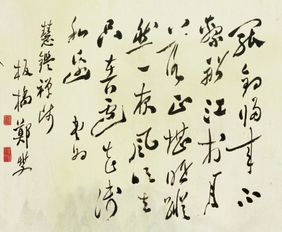 罷釣歸來不
繫船江村月
落正堪眠縱
然一夜風吹去
只在蘆花淺
水邊 書為
慧鑑禪師
板橋鄭燮